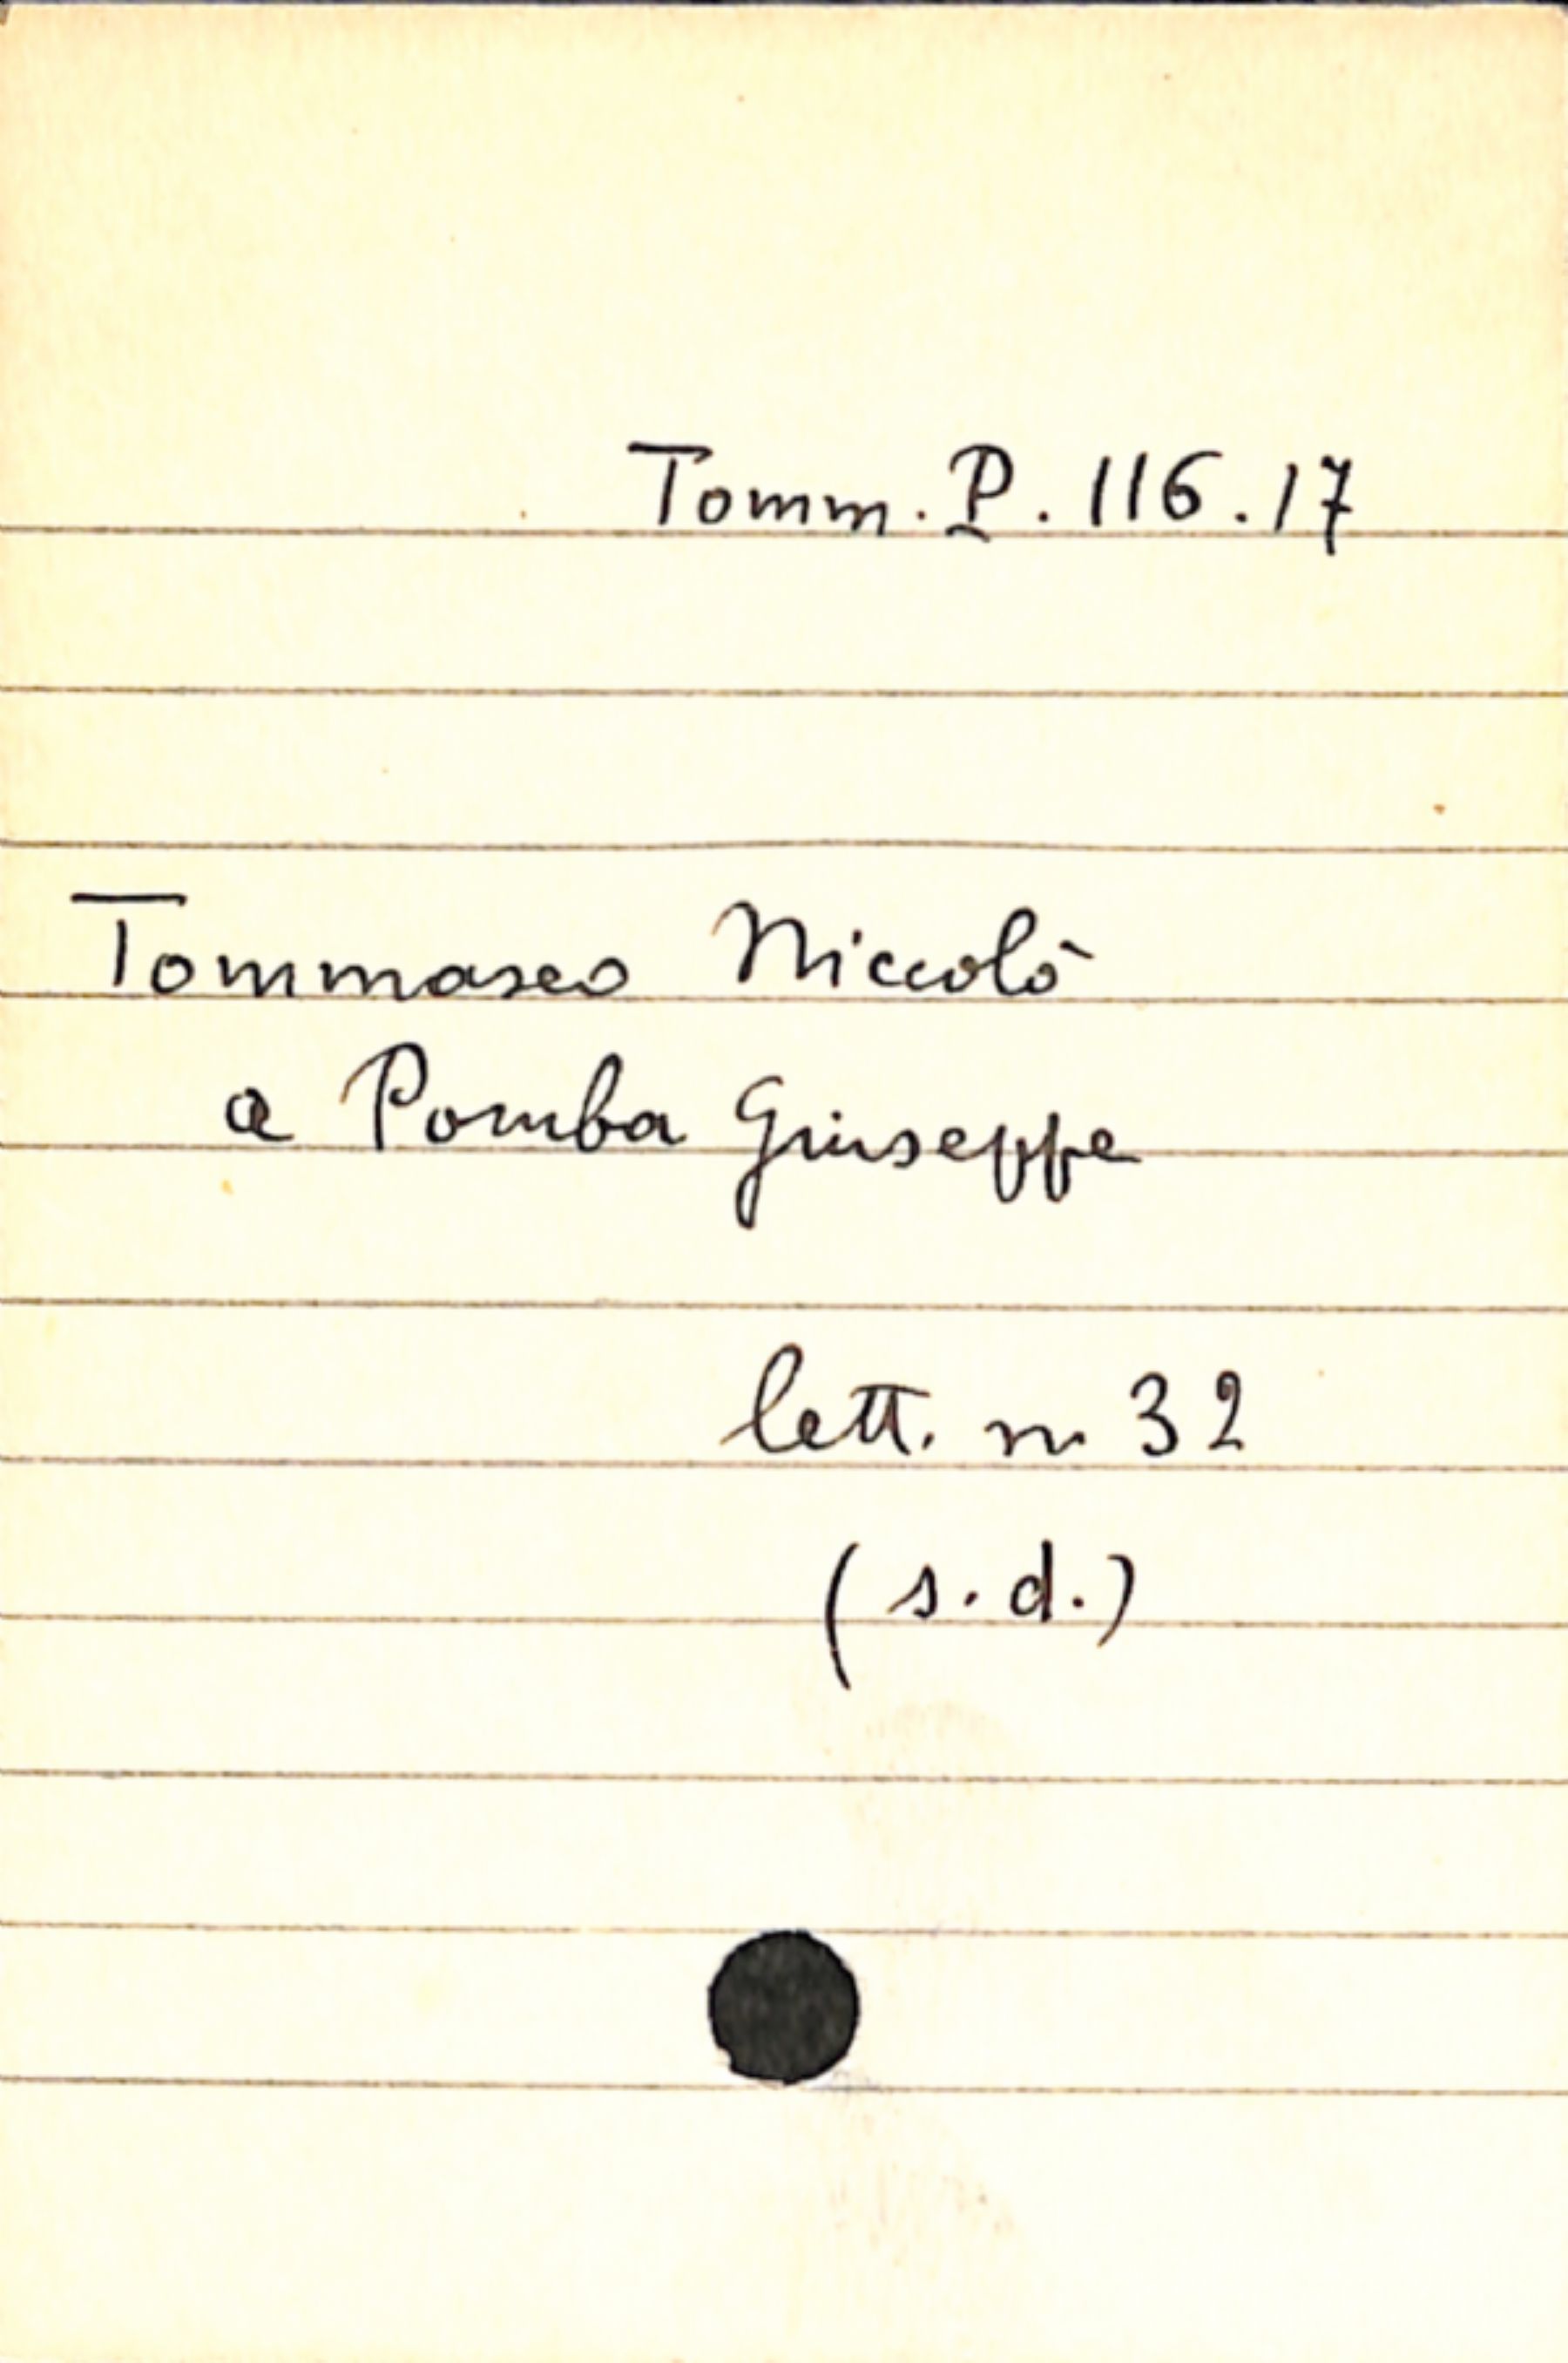 Tomm. P. 116.17
Tommaseo Niccolò
a Pomba Giuseppe
lett. n. 32
(s.d.)